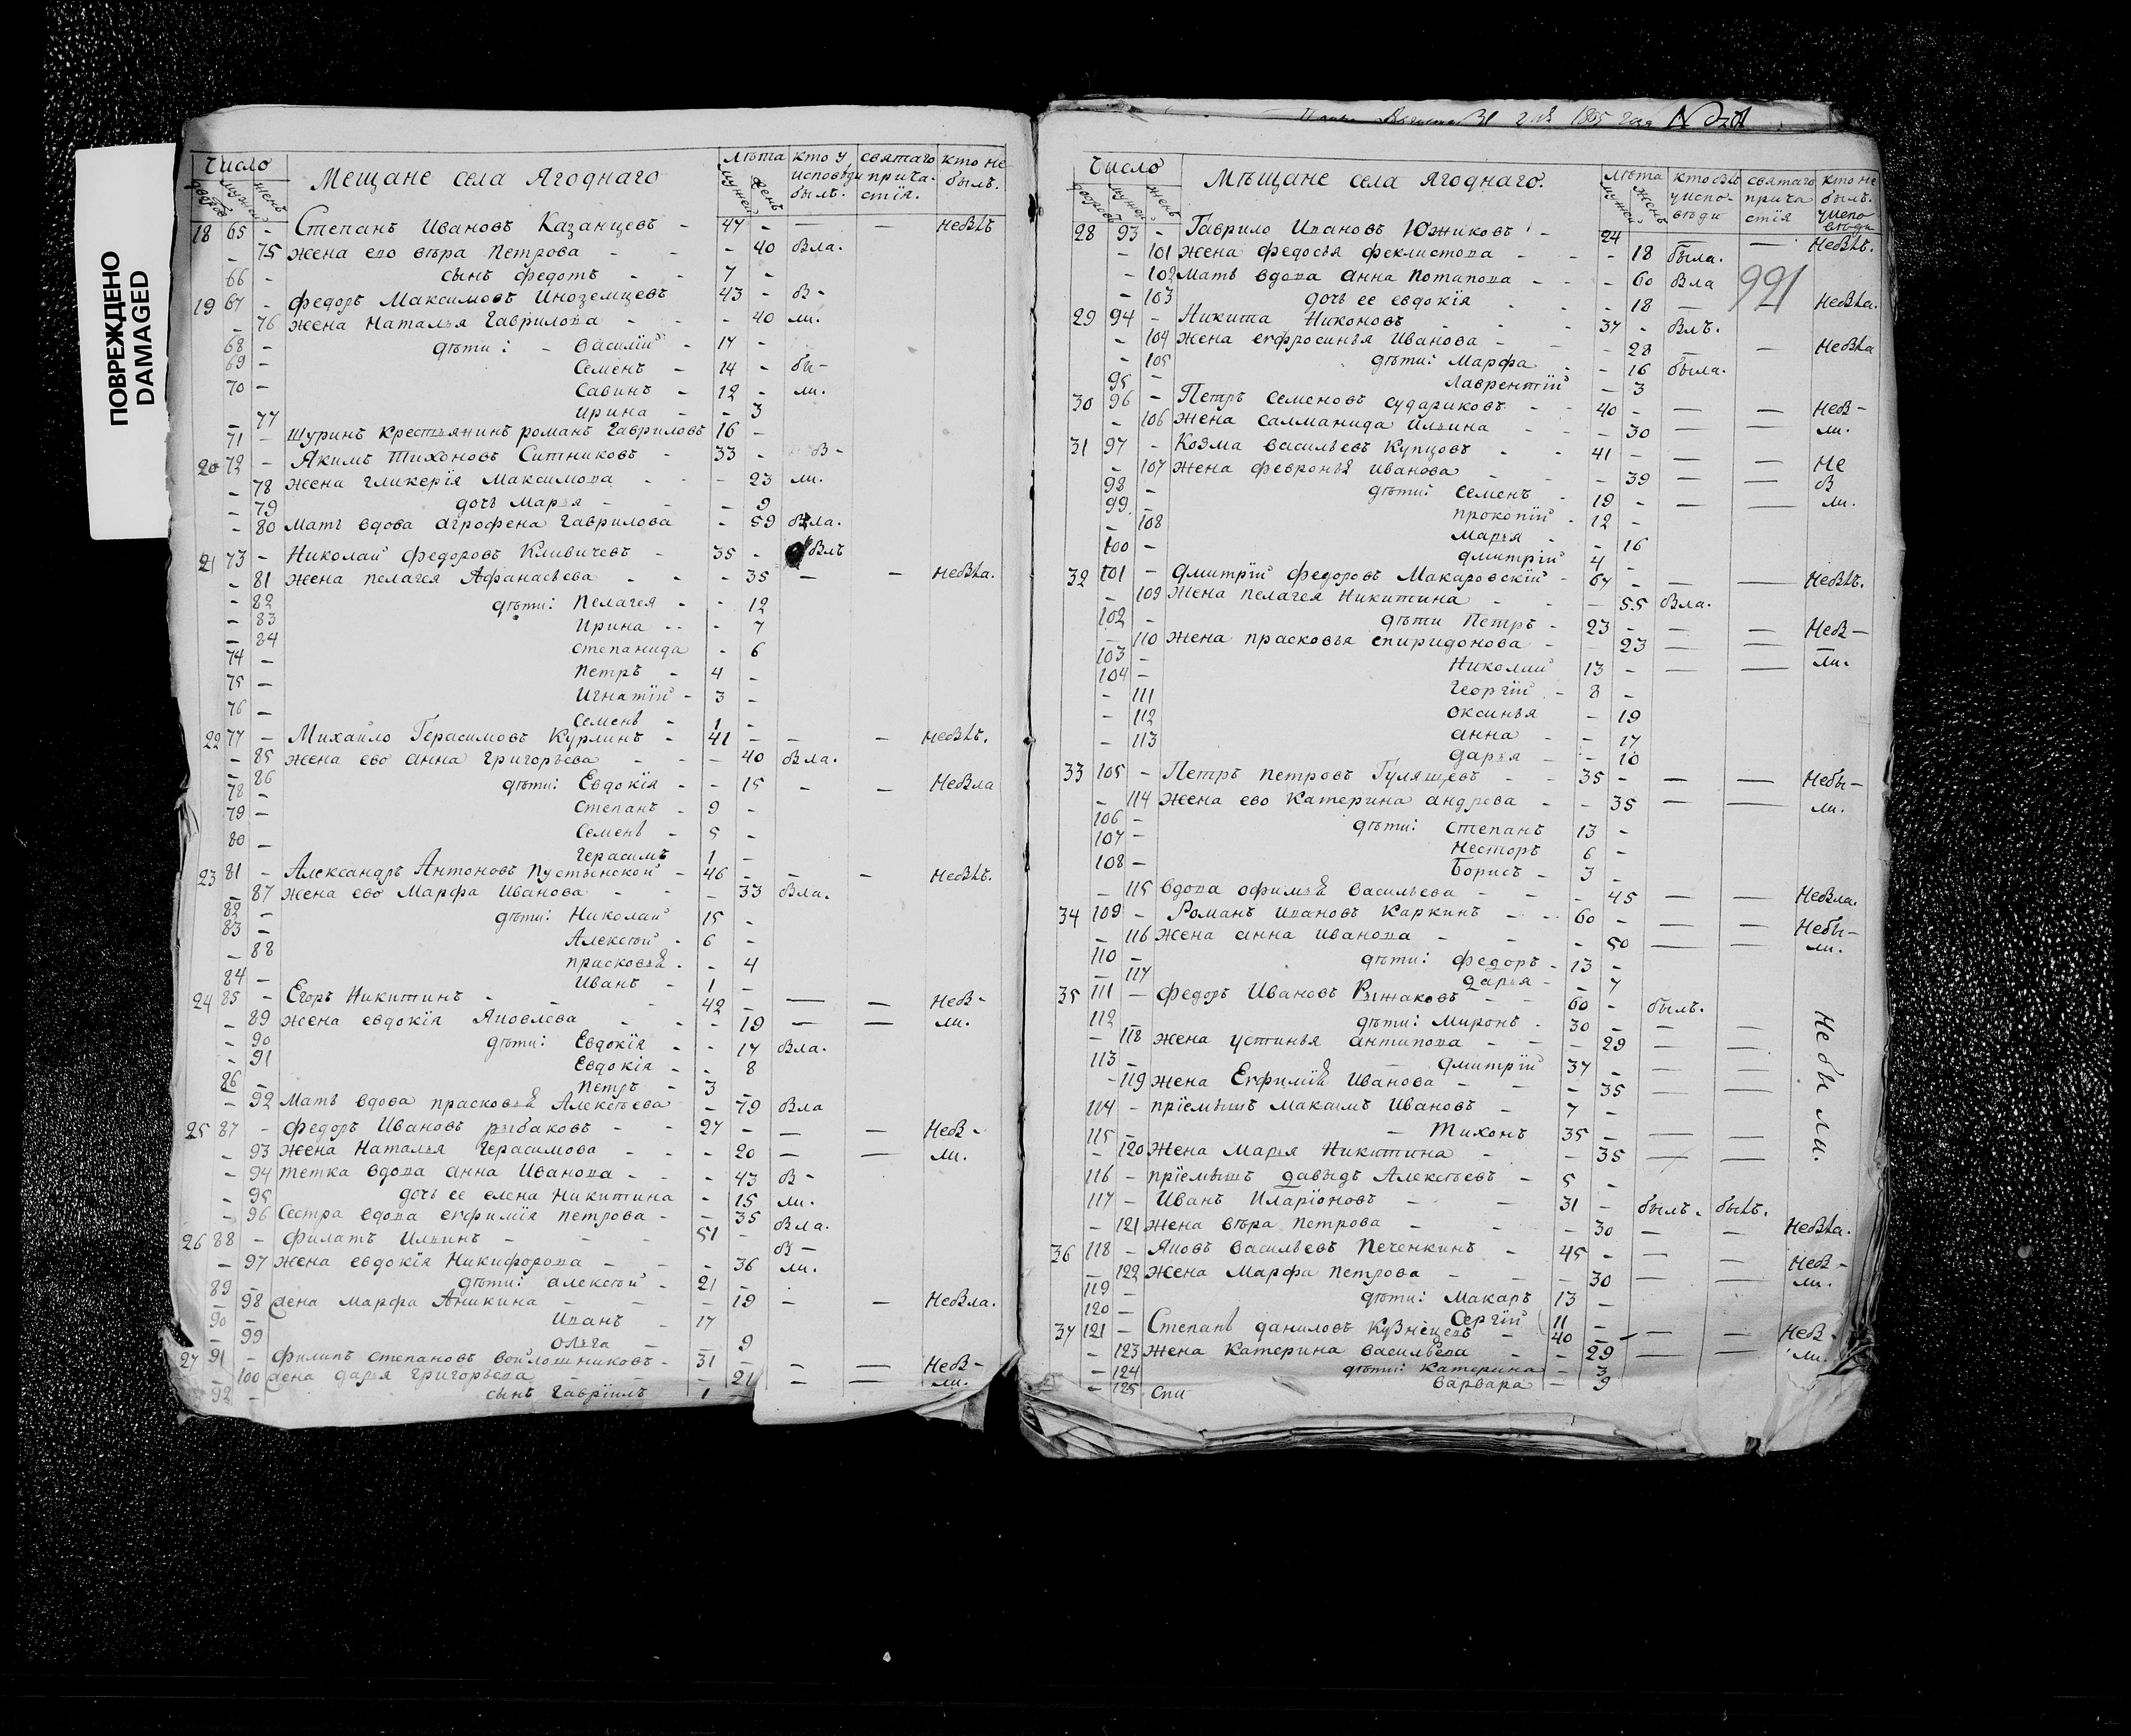 ПОВРЕЖДЕНО
DAMAGED
Число Мещане села Ягоднаго Лѣта кто у исповѣди былъ. святаго прича- стїя. кто не былъ.
дворов мужей женъ мужей женъ
18 65 - Степанъ Ивановъ Казанцевъ - 47 - — — небылъ
- 75 жена его вѣра Петрова - - 40 была.
66 - сынъ федотъ - - 7 -
19 67 - федоръ Максимовъ Иноземцевъ 43 - бы-
- 76 жена Наталья Гаврилова - - 40 ли.
68 - дѣти: - василїй - 17 -
69 - Семенъ - 14 - бы-
70 - Савинъ - 12 - ли.
- 77 ирина - - 3
71 - шуринъ крестьянинъ романъ Гавриловъ 16 -
20 72 - Якимъ Тихоновъ Ситниковъ - 33 - бы-
- 78 жена гликерїя Максимова - - 23 ли.
- 79 дочь Марья - - 9
- 80 Мать вдова агрофена гаврилова - 59 была.
21 73 - Николай федоровъ Кливичевъ - 35 - былъ
- 81 жена пелагея Афанасьева - - 35 — — небыла.
- 82 дѣти: Пелагея - - 12
- 83 Ирина - - 7
- 84 степанида - 6
74 - петръ - 4 -
75 - Игнатїй - 3 -
76 - Семенъ - 1 -
22 77 - Михайло Герасимовъ Курлинъ - 41 - — — небылъ.
- 85 жена ево анна григорьева - - 40 была.
- 86 дѣти: Евдокїя - - 15 - — небыла
78 - степанъ - 9 -
79 - Семенъ - 5 -
80 - герасимъ 1 -
23 81 - Александръ Антоновъ Пустынской - 46 - — — небылъ.
- 87 жена ево Марфа Иванова - - 33 была.
82 - дѣти: Николай 15 -
83 - Алексѣй - 6 -
- 88 прасковья - - 4
84 - Иванъ - 1 -
24 85 - Егоръ Никитинъ - - 42 - — — небы-
- 89 жена евдокїя Яковлева - - 19 — — ли.
- 90 дѣти: Евдокїя - - 17 была.
- 91 Евдокїя - - 8
86 - петръ - 3 -
- 92 Мать вдова прасковья Алексѣева - 79 была
25 87 - федоръ Ивановъ рыбаковъ - - 27 - — — небы-
- 93 жена Наталья герасимова - - 20 — — ли.
- 94 тетка вдова анна Иванова - - 43 бы-
- 95 дочь ее елена никитина - 15 ли.
- 96 Сестра вдова ефимїя петрова - - 35 была.
26 88 - филатъ Ильинъ - - 51 - бы-
- 97 жена евдокїя Никифорова - - 36 ли.
89 - дѣти: алексѣй - 21 -
- 98 жена марфа Аникина - - 19 - — небыла.
90 - Иванъ - 17
- 99 ольга - - 9
27 91 - филипъ степановъ войлошниковъ - 31 - — — небы-
- 100 жена дарья григорьева - - 21 — — ли.
92 - сынъ гаврїилъ 1 -
1865 года
Число Мѣщане села Ягоднаго. Лѣта кто былъ у испо- вѣди святаго прича стїя кто не былъ. у испо вѣди
дворовъ мужей женъ мужей женъ
28 93 - Гаврило Ивановъ Южиковъ - 24 — — небылъ.
- 101 жена федосья феклистова - - 18 была.
- 102 мать вдова анна потапова - - 60 была 991
- 103 дочь ее евдокїя - - 18 — небыла.
29 94 - Никита Никоновъ - 37 - былъ.
- 104 жена ефросинья Иванова - - 28 — — небыла
- 105 дѣти: Марфа - - 16 была.
95 - лаврентїй - 3
30 96 - Петръ семеновъ судариковъ - - 40 - — — небы-
- 106 жена салманида ильина - - 30 — — ли.
31 97 - Козма васильевъ Купцовъ - - 41 - — — Не
- 107 жена февронья иванова - - 39 — — бы
98 - дѣти: Семенъ - 19 - — — ли.
99 - прокопїй - 12 -
- 108 марья - - 16
100 - дмитрїй 4 -
32 101 - дмитрїй федоровъ Макаровскїй - 67 - — — небылъ.
- 109 жена пелагея никитина - - 55 была.
102 - дѣти петръ - 23 - — — небы-
- 110 жена прасковья спиридонова - - 23 — — ли.
103 - Николай 13 - — —
104 - георгїй - 8 -
- 111 оксинья - 19
- 112 анна - - 17
- 113 дарья - - 10
33 105 - Петръ петровъ Гулящевъ - - 35 - — — небы-
- 114 жена ево катерина андрева - - 35 — — ли.
106 - дѣти: степанъ 13 -
107 - несторъ 6 -
108 - Борисъ - 3 -
- 115 вдова офимья васильева - - 45 — — небыла.
34 109 - Романъ ивановъ каркинъ - - 60 - — — небы-
- 116 жена анна иванова - - 50 — — ли.
110 - дѣти: федоръ - 13 -
- 117 дарья - - 7
35 111 - федоръ Ивановъ Рыжаковъ - - 60 - былъ.
112 дѣти: Миронъ - 30 - — — Небыли.
- 118 жена устинья антипова - - 29 — —
113 - дмитрїй 37 - — —
- 119 жена Ефимїя иванова - - 35 — —
114 - прїемышъ максимъ Ивановъ - 7 -
115 - - тихонъ 35 - — —
- 120 жена марья никитина - - 35 — —
116 - прїемышъ давыдъ Алексѣевъ - 5 -
117 - Иванъ Иларїоновъ - - 31 - былъ. былъ.
- 121 жена вѣра петрова - - 30 — — небыла.
36 118 - Яковъ васильевъ печенкинъ - 45 - — — небы-
- 122 жена марфа петрова - - 30 — — ли.
119 - дѣти: макаръ 13 -
120 - Сергїй 11 -
37 121 - Степанъ даниловъ кузнецовъ - 40 - — — небы-
- 123 жена катерина васильева - - 29 — — ли.
- 124 дѣти: катерина - 3
- 125 варвара - 9